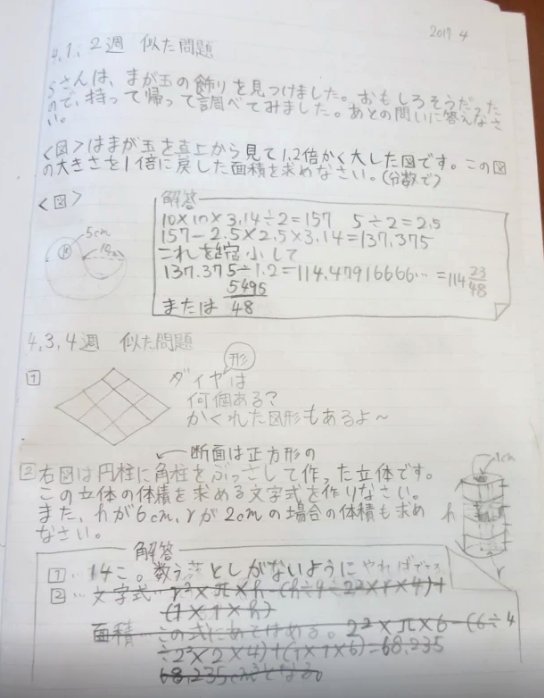 2017.4
4.1、2週 似た問題
さんは、まが玉の飾りを見つけました。おもしろそうだった
ので、持って帰って調べてみました。あとの問いに答えなさ
い。
<図>はまが玉を真上から見て1.2倍かく大した図です。この図
の大きさを1倍に戻した面積を求めなさい。(分数で)
<図>
5cm
解答
10×10×3.14÷2=157 5÷2=2.5
157-2.5×2.5×3.14=137.375
これを縮小して
137.375÷1.2=114.47916666… =114 23/48
または 5495/48
4.3、4週 似た問題
1 ダイヤ形は
何個ある?
かくれた図形もあるよ〜
断面は正方形の
2 右図は円柱に角柱をぶっさして作った立体です。
この立体の体積を求める文字式を作りなさい。
また、hが6cm、rが2cmの場合の体積も求め
なさい。
1cm
h
r
解答
1… 14こ。数え落としがないように
2… 文字式… r²×π×h-(h÷
(1×1×h)
面積 この式にあてはめる。2²×π×6-(6÷4
÷2²×2×4)+(1×1×6)=68.235
68.235 となる。